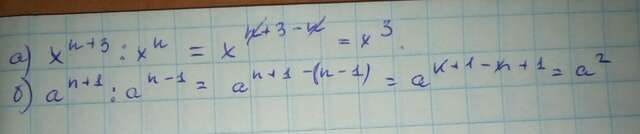 а) x^{n+3} : x^n = x^{n+3-n} = x^3.
б) a^{n+1} : a^{n-1} = a^{n+1-(n-1)} = a^{n+1-n+1} = a^2